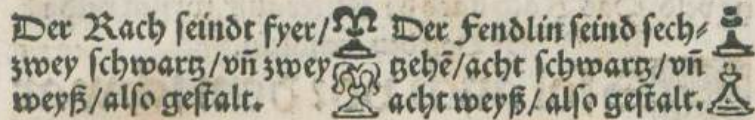 Der Rach seindt fyer/
zwey schwartz/vñ zwey
weyß/also gestalt.
Der Fendlin seind sech⸗
tzehẽ/acht schwartz/vñ
acht weyß/also gestalt.